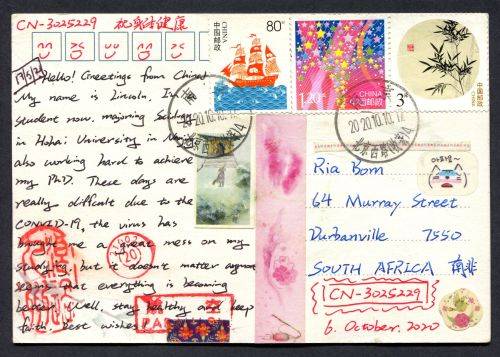 CN-3025229 祝身体健康
Hello! Greetings from China!
My name is Lincoln. I'm
student now. majoring
in Hohai University in
also working hard to achieve
my Ph.D. These days are
really difficult due to the
COVID-19, the virus has
brought me a great mess on my
studying but it doesn't matter anymore
seems that everything is becoming
better. Well, stay healthy and keep
faith. Best wishes
80分
CHINA
中国邮政
1.20元
CHINA
中国邮政
3元
中国邮政
CHINA
2020.10.10.17
Ria Born
64 Murray Street
Durbanville 7550
SOUTH AFRICA 南非
CN-3025229
6. October. 2020